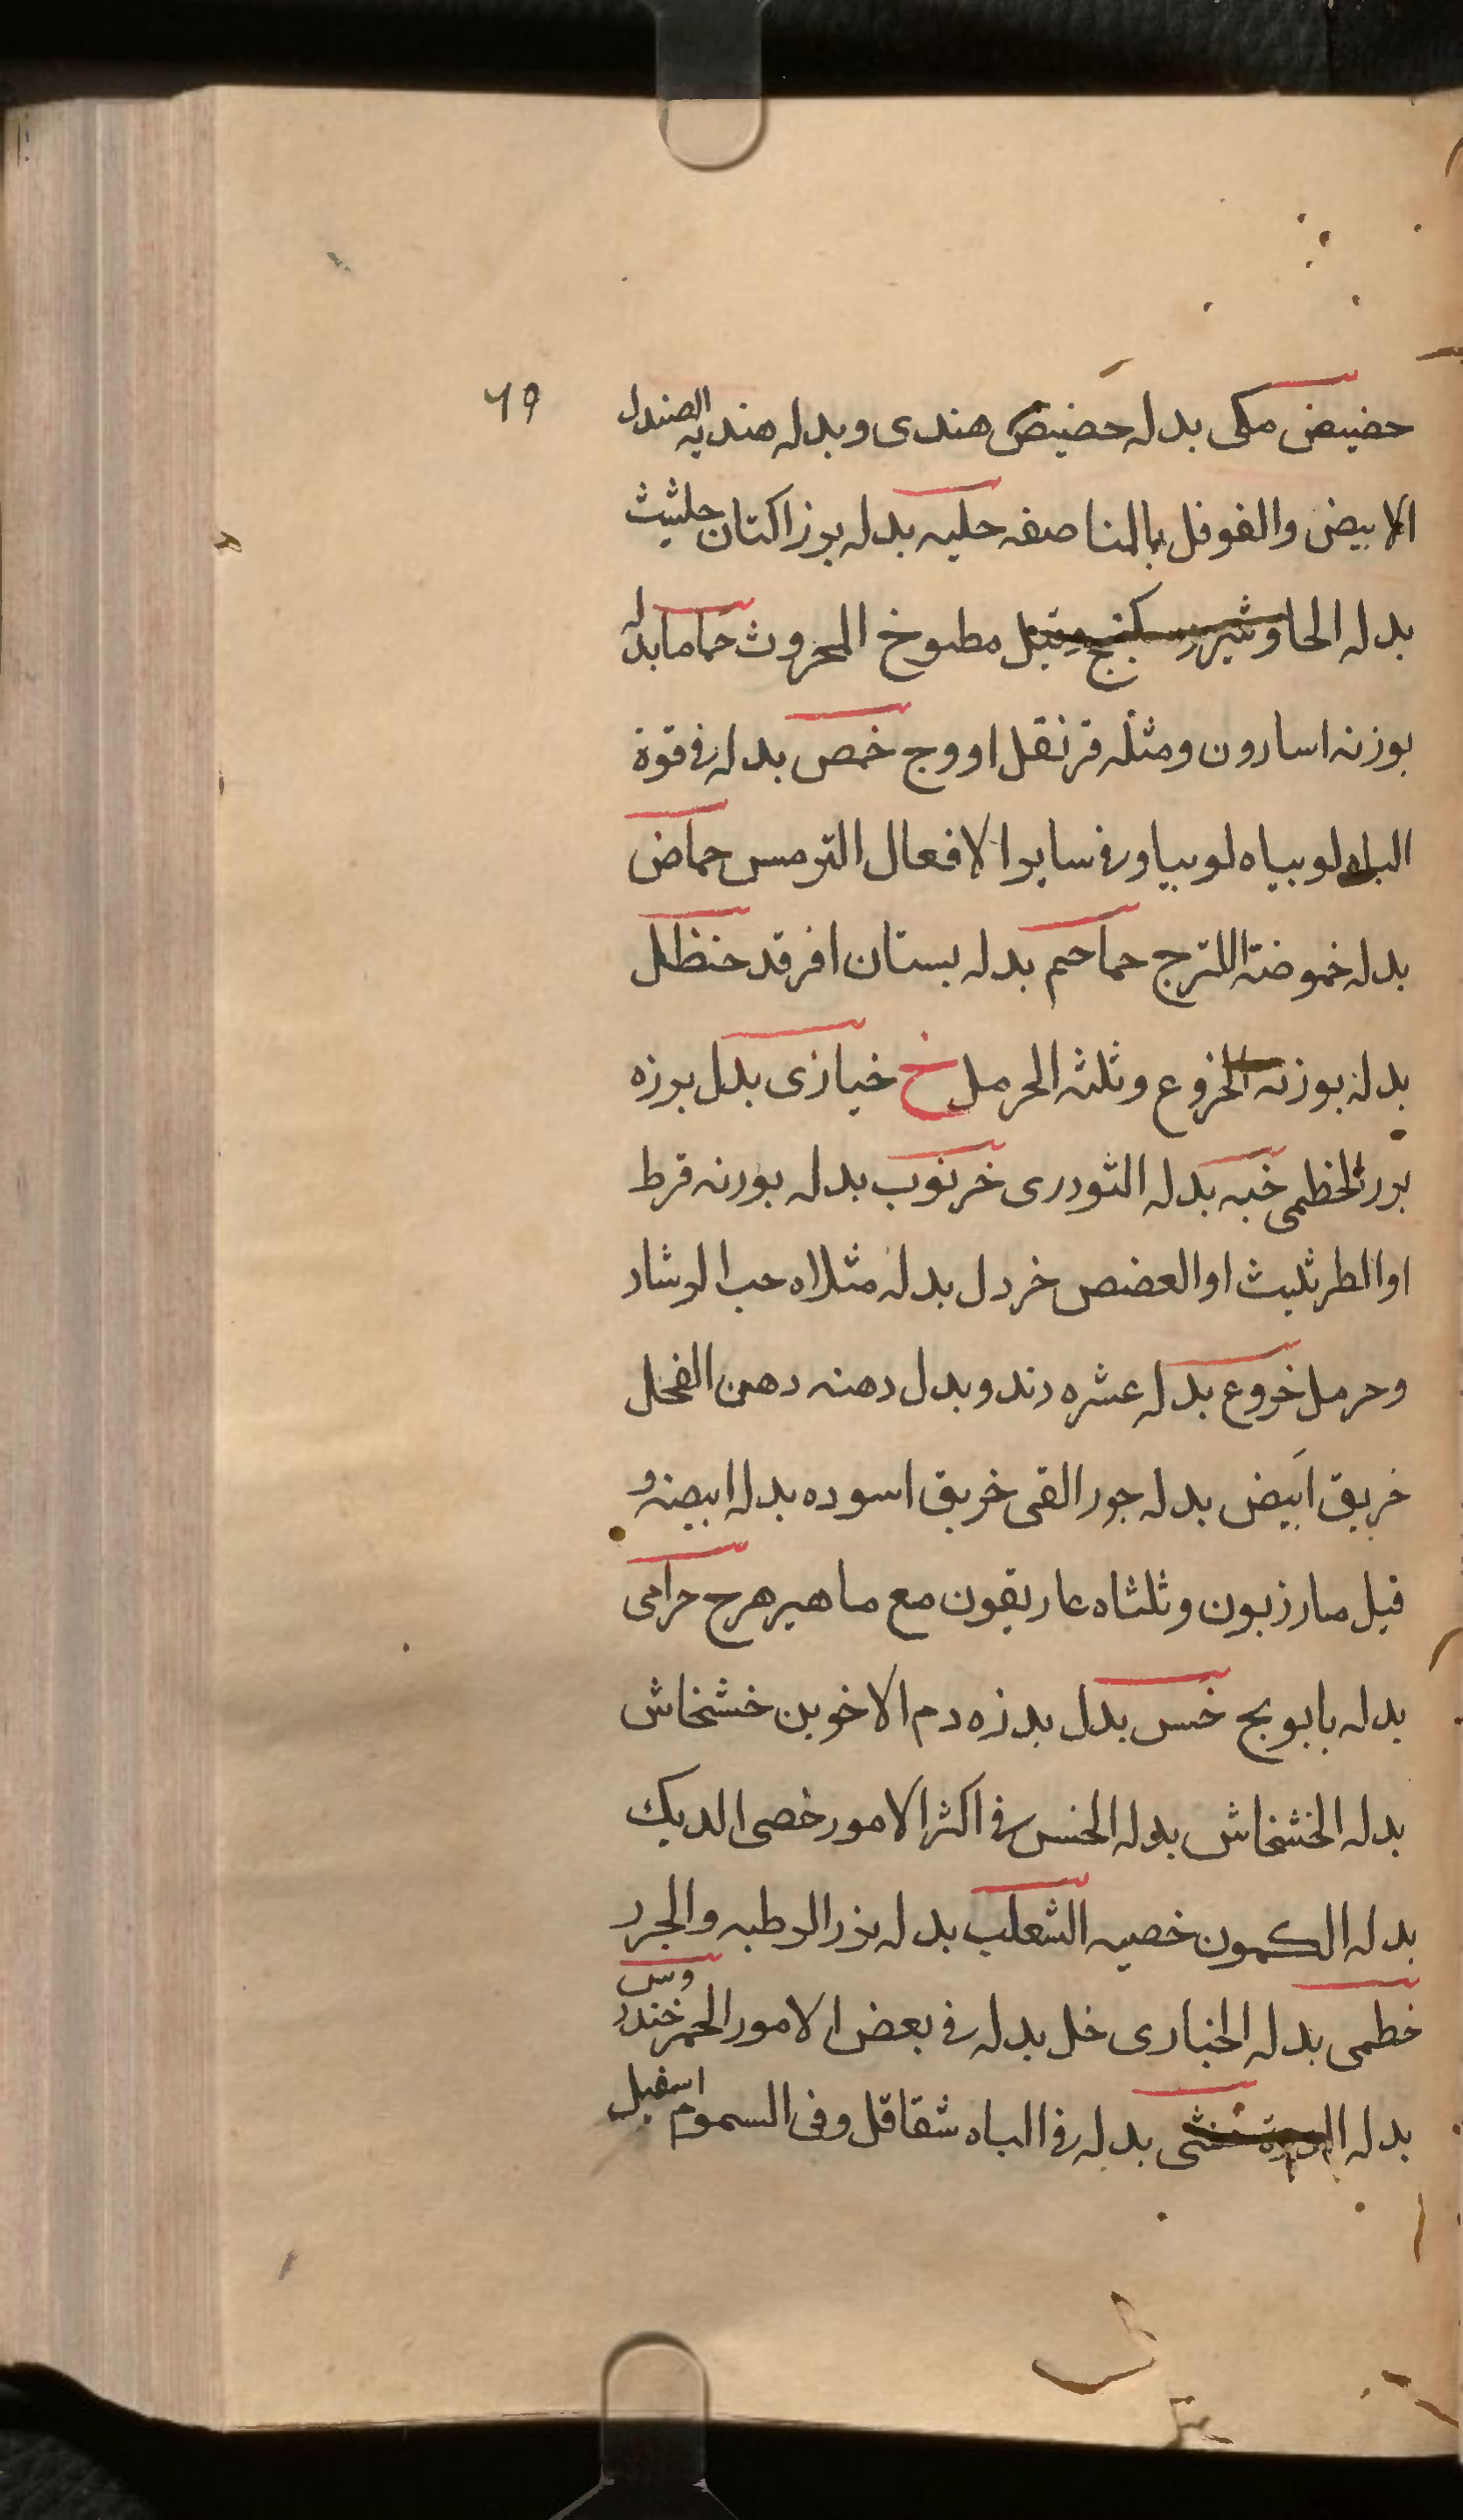 ٦٩
حضيض مكى بدله حضيض هندى وبدله هنديه الصندل
الابيض والفوفل بالمناصفه حلبه بدله برز اكتان حلثيث
بدله الجاوشير سكبنج وقيل مطبوخ المحروث حماما بدله
بوزنه اسارون ومثله قرنقل او وج خمص بدله فى قوة
الباه لوبياه لوبيا وفى ساير الافعال الترمس حماض
بدله خموضة اللترج حماحم بدله بستان افرقد حنظل
بدله بوزنه الخروع وثلثه الحرمل خ خبازى بدل برزه
برر الخظمى خبه بدله الثودرى خرنوب بدله بورنه قرط
او الطرثليث او العضص خردل بدله مثلاه حب الرشاد
وحرمل خروع بدله عشره دند وبدل دهنه دهن الفحل
خربق ابيض بدله جور القى خربق اسوده بدله ابيضه و
قيل مارزبون وثلثاه عاريقون مع ماهيرهرج خرامى
بدله بابوبج خس بدل بدزه دم الاخوين خشخاش
بدله الخشخاش بدله الخس فى اكثر الامور خصى الديك
بدله الكمون خصيه الثعلب بدله بذر الرطبه والجرر
خطمى بدله الخبارى خل بدله فى بعض الامور الحمر خندروس
بدله خنثى بدله فى الباه شقاقل وفى السموم اسفيل